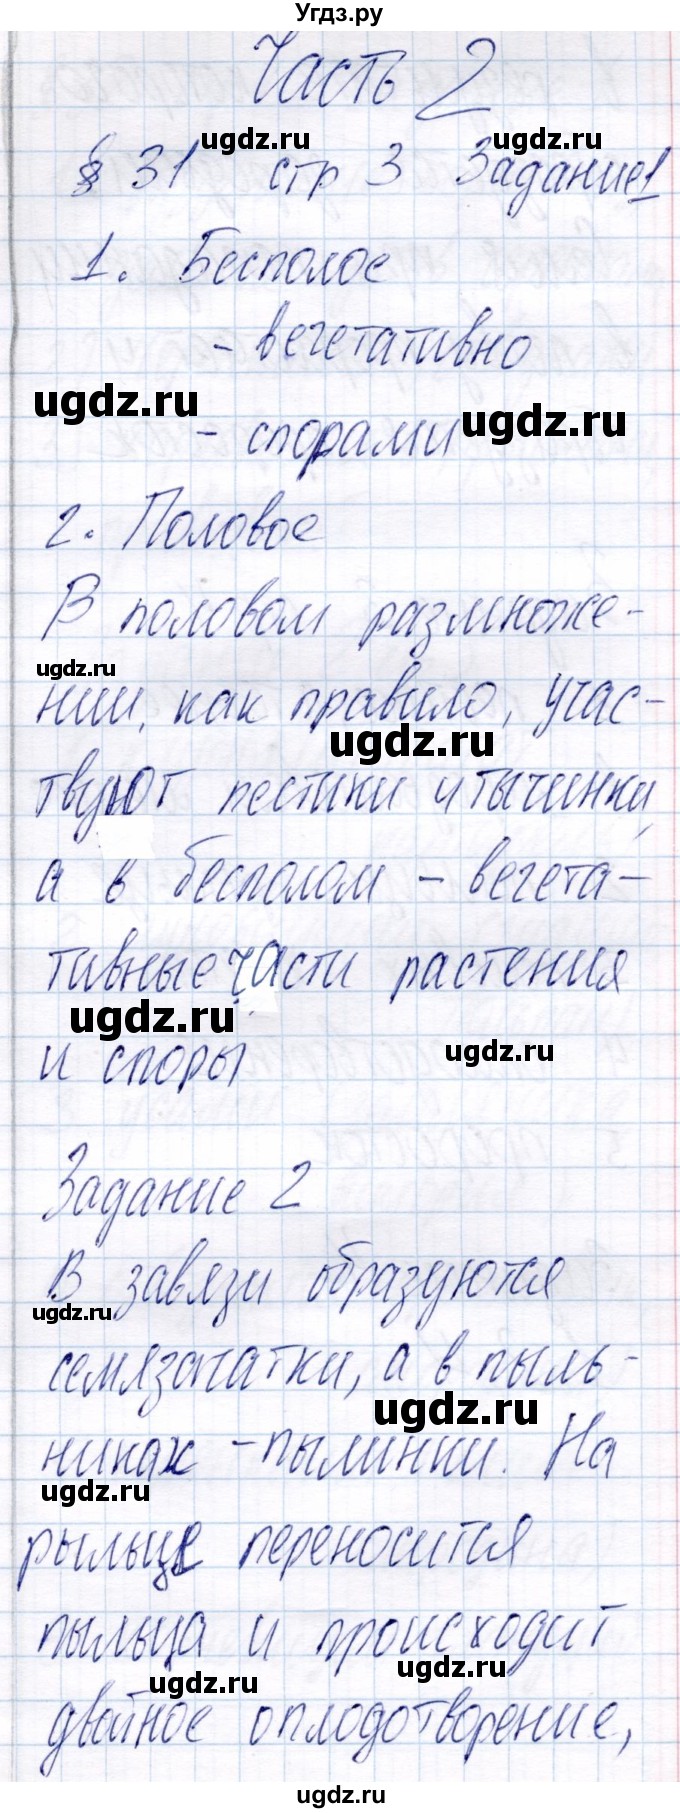 Угдз.ру
Часть 2
ugdz.ru ugdz.ru
§ 31 стр 3 Задание 1
1. Бесполое
- вегетативно
ugdz.ru ugdz.ru
- спорами
2. Половое
В половом размноже-
ugdz.ru
нии, как правило, учас-
ugdz.ru
твуют пестики и тычинки,
а в бесполом - вегета-
тивные части растения
ugdz.ru ugdz.ru
и споры
Задание 2
В завязи образуются
ugdz.ru
семязачатки, а в пыль-
ugdz.ru
никах - пылинки. На
ugdz.ru
рыльце переносится
пыльца и происходит
ugdz.ru ugdz.ru
двойное оплодотворение,
ugdz.ru